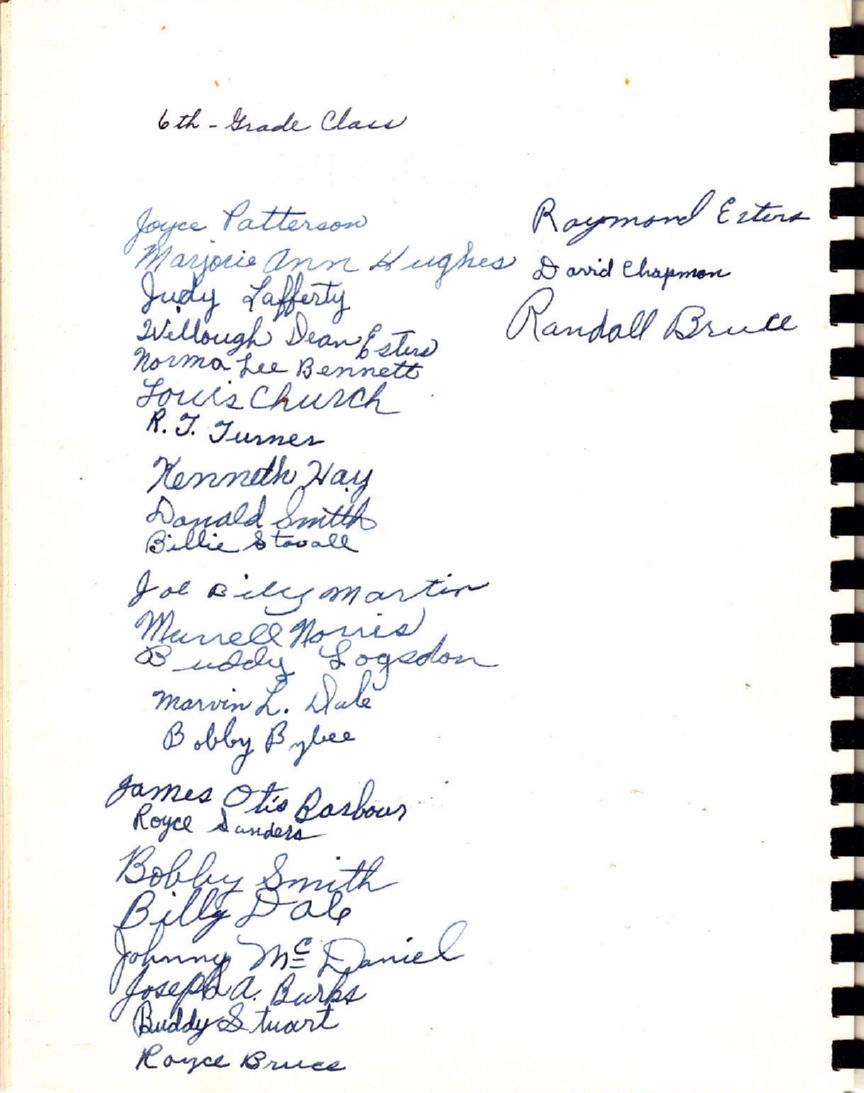 6th - Grade Class
Joyce Patterson
Marjorie Ann Hughes
Judy Lafferty
Willough Dean Esters
Norma Lee Bennett
Louis Church
R. T. Turner
Kenneth Hay
Donald Smith
Billie Stovall
Joe Billy Martin
Murrell Norris
Buddy Logsdon
Marvin L. Dale
Bobby Bybee
James Otis Barbour
Royce Sanders
Bobby Smith
Billy Dale
Johnny Mc Daniel
Joseph A. Burks
Buddy Stuart
Royce Bruce
Raymond Esters
David Chapman
Randall Bruce